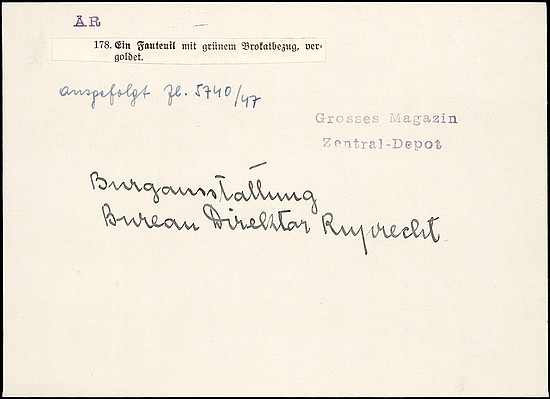 AR
178. Ein Fauteuil mit grünem Brokatbezug, ver-
goldet.
ausgefolgt Zl. 5740/47
Grosses Magazin
Zentral-Depot
Burgausstallung
Bureau Direktor Ruprecht